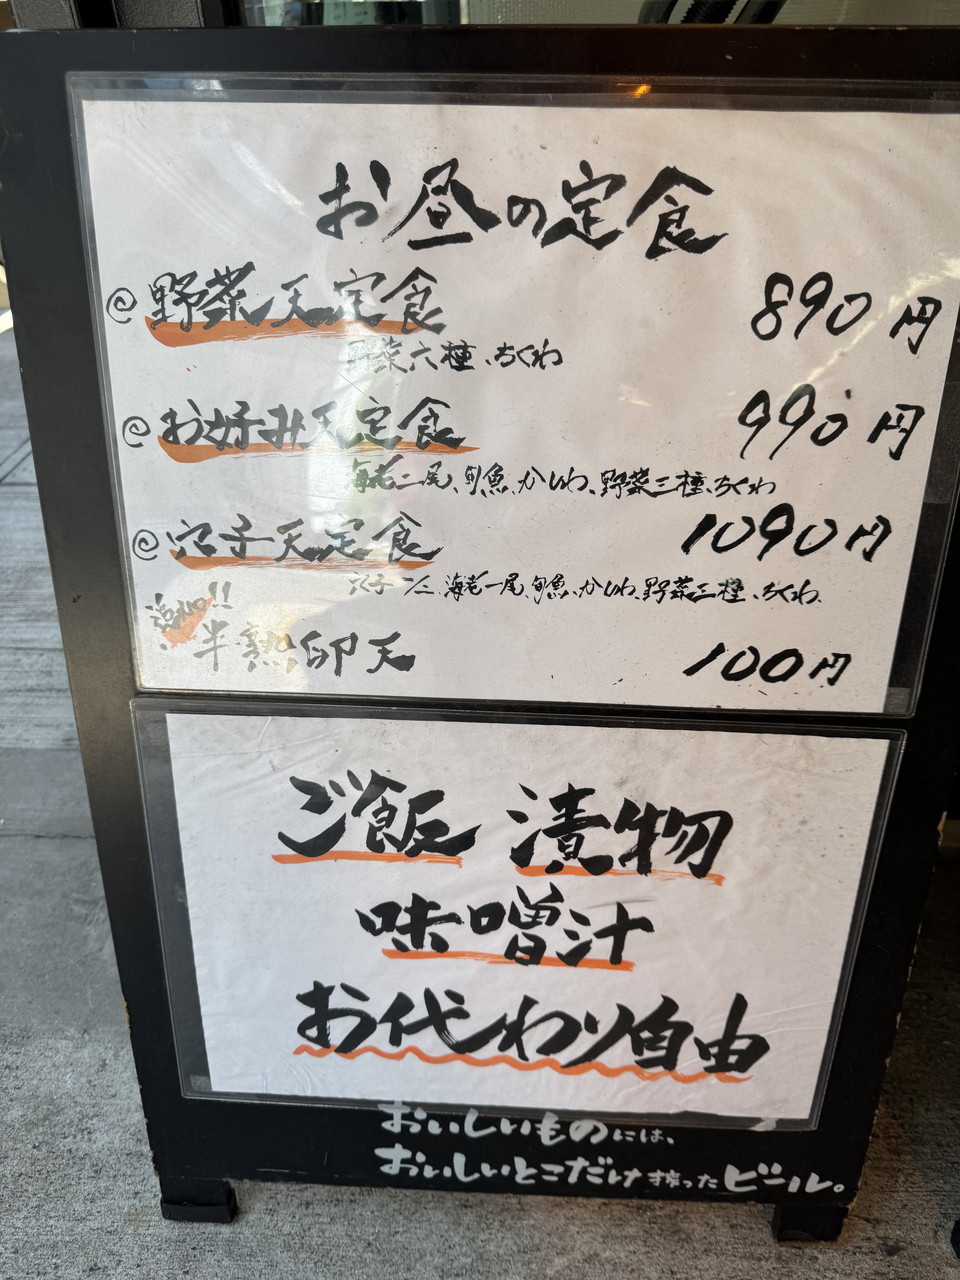 お昼の定食
@野菜天定食 890円
野菜六種、ちくわ
@お好み天定食 990円
海老二尾、旬魚、かしわ、野菜三種、ちくわ
@穴子天定食 1090円
穴子一本、海老一尾、旬魚、かしわ、野菜三種、ちくわ
追加!!
半熟卵天 100円
ご飯 漬物
味噌汁
お代わり自由
おいしいものには、
おいしいとこだけ搾ったビール。